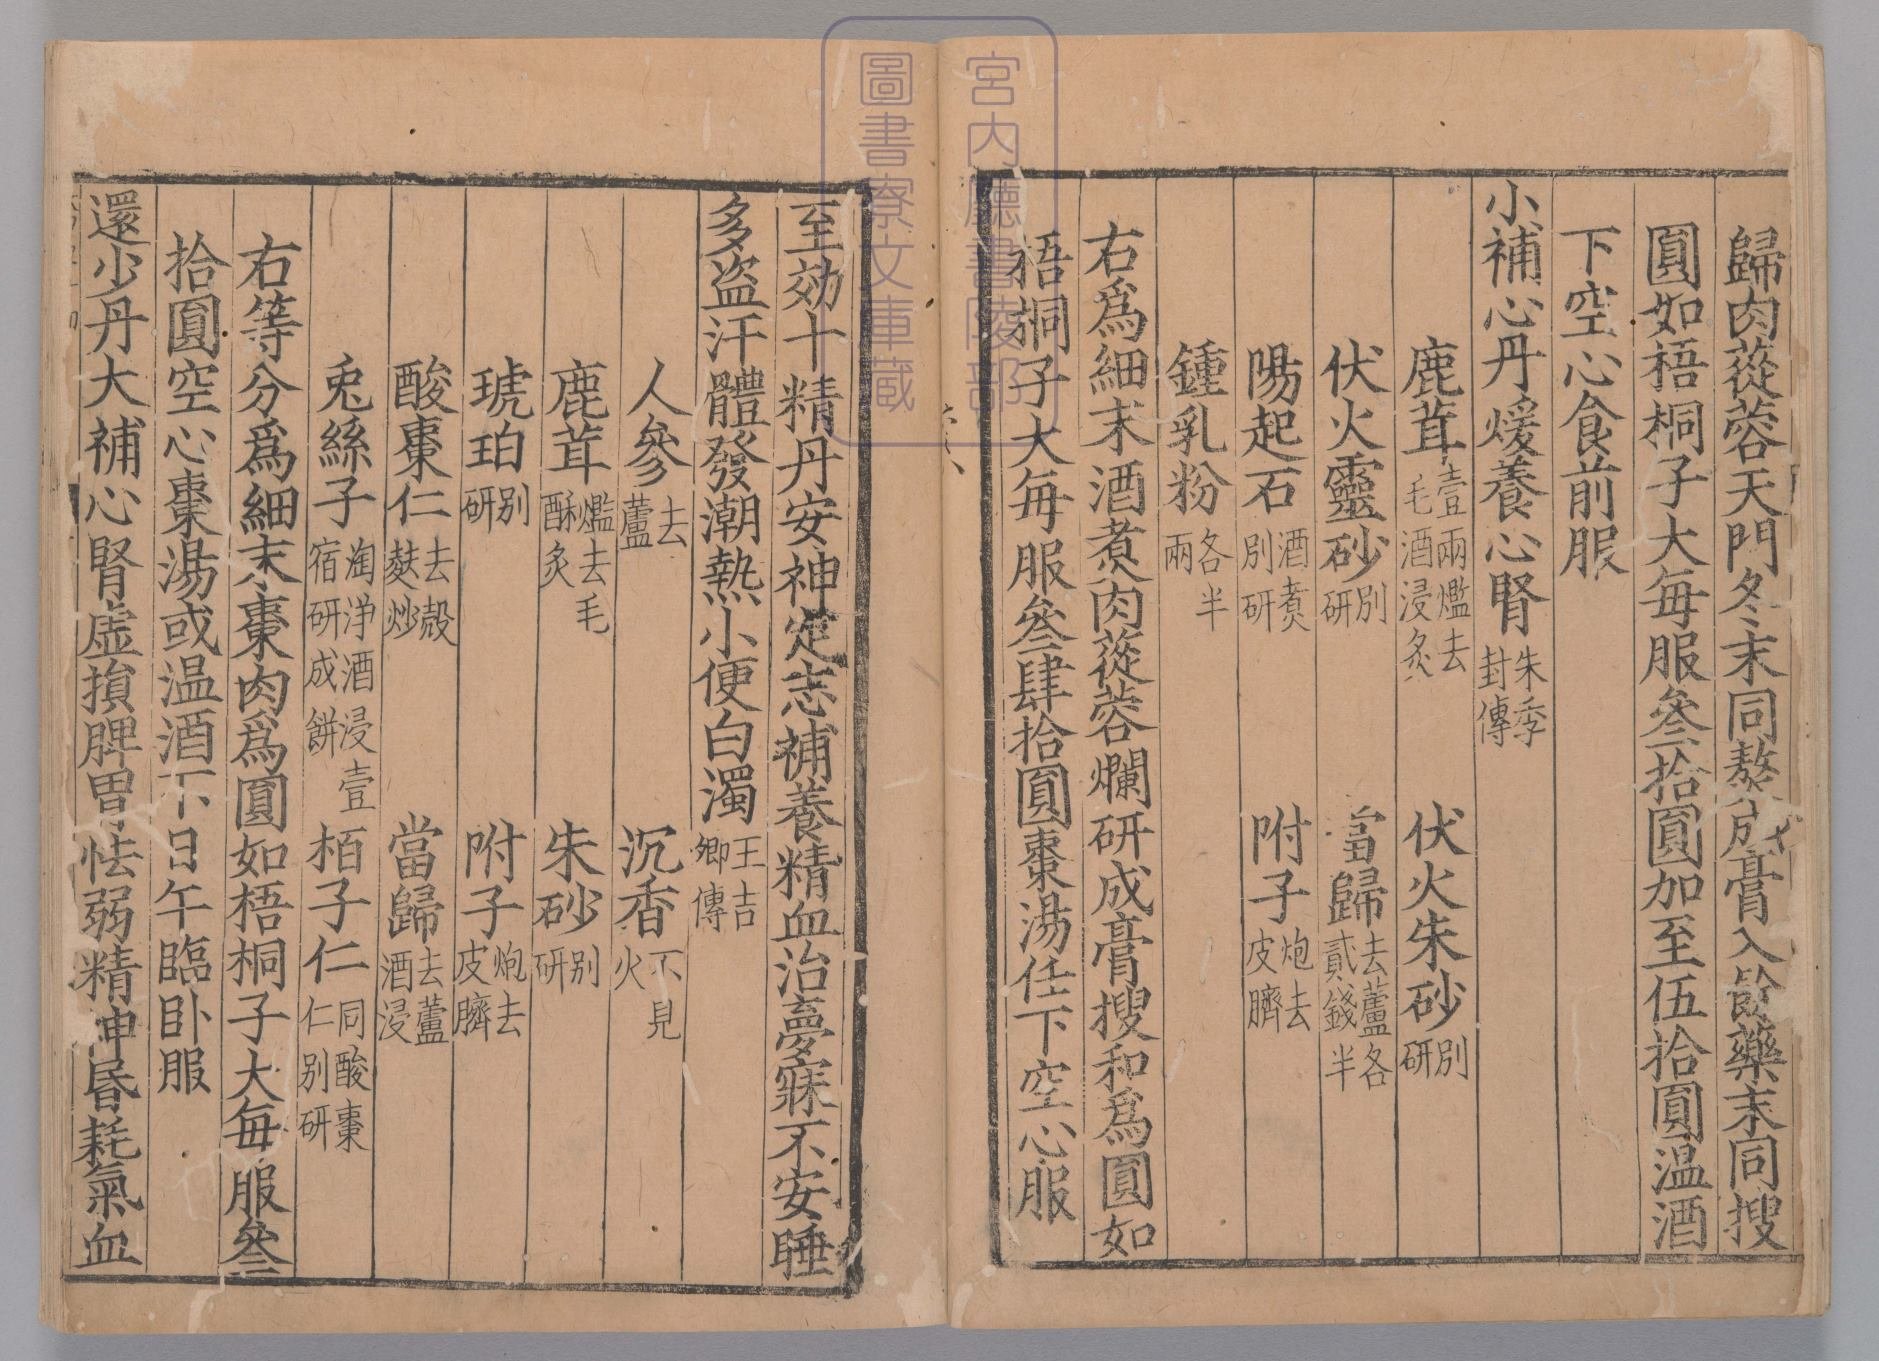 歸肉蓯蓉天門冬末同熬成膏入餘藥末同搜
圓如梧桐子大每服叁拾圓加至伍拾圓温酒
下空心食前服
小補心丹煖養心腎朱季封傳
鹿茸壹兩爁去毛酒浸炙 伏火朱砂別研
伏火靈砂別研 當歸去蘆各貳錢半
陽起石酒煑別研 附子炮去皮臍
鍾乳粉各半兩
右爲細末酒煮肉蓯蓉爛研成膏搜和爲圓如
梧桐子大每服叁肆拾圓棗湯任下空心服
至効十精丹安神定志補養精血治夢寐不安睡
多盗汗體發潮熱小便白濁王吉卿傳
人參去蘆 沉香不見火
鹿茸爁去毛酥炙 朱砂別研
琥珀別研 附子炮去皮臍
酸棗仁去殼麩炒 當歸去蘆酒浸
兎絲子淘浄酒浸壹宿研成餅 栢子仁同酸棗仁別研
右等分爲細末棗肉爲圓如梧桐子大每服叁
拾圓空心棗湯或温酒下日午臨卧服
還少丹大補心腎虛損脾胃怯弱精神昬耗氣血
宮内廳書陵部
圖書寮文庫蔵